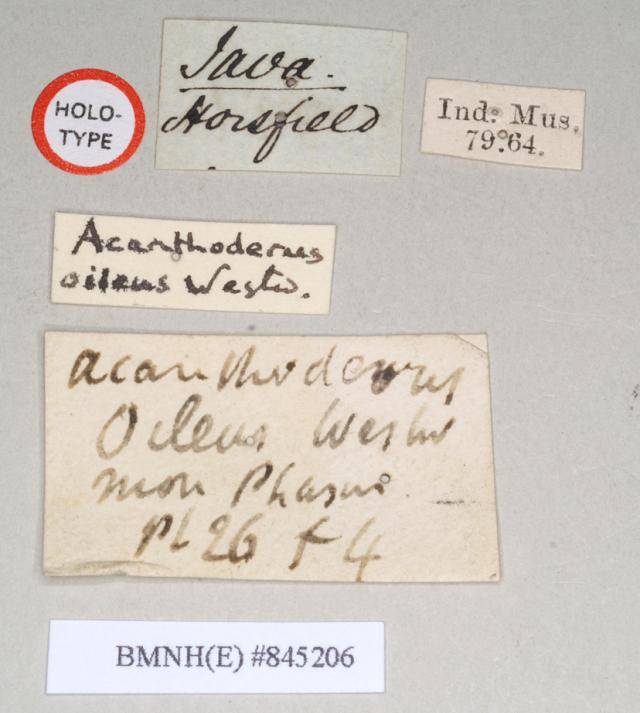 HOLO-
TYPE
Java.
Horsfield
Ind. Mus.
79.64.
Acanthoderus
oileus Westw.
acanthoderus
Oileus Westw
mon Phasm.
Pl 26 f 4
BMNH(E) #845206